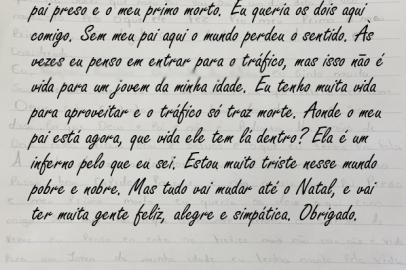 pai preso e o meu primo morto. Eu queria os dois aqui
comigo. Sem meu pai aqui o mundo perdeu o sentido. Às
vezes eu penso em entrar para o tráfico, mas isso não é
vida para um jovem da minha idade. Eu tenho muita vida
para aproveitar e o tráfico só traz morte. Aonde o meu
pai está agora, que vida ele tem lá dentro? Ela é um
inferno pelo que eu sei. Estou muito triste nesse mundo
pobre e nobre. Mas tudo vai mudar até o Natal, e vai
ter muita gente feliz, alegre e simpática. Obrigado.